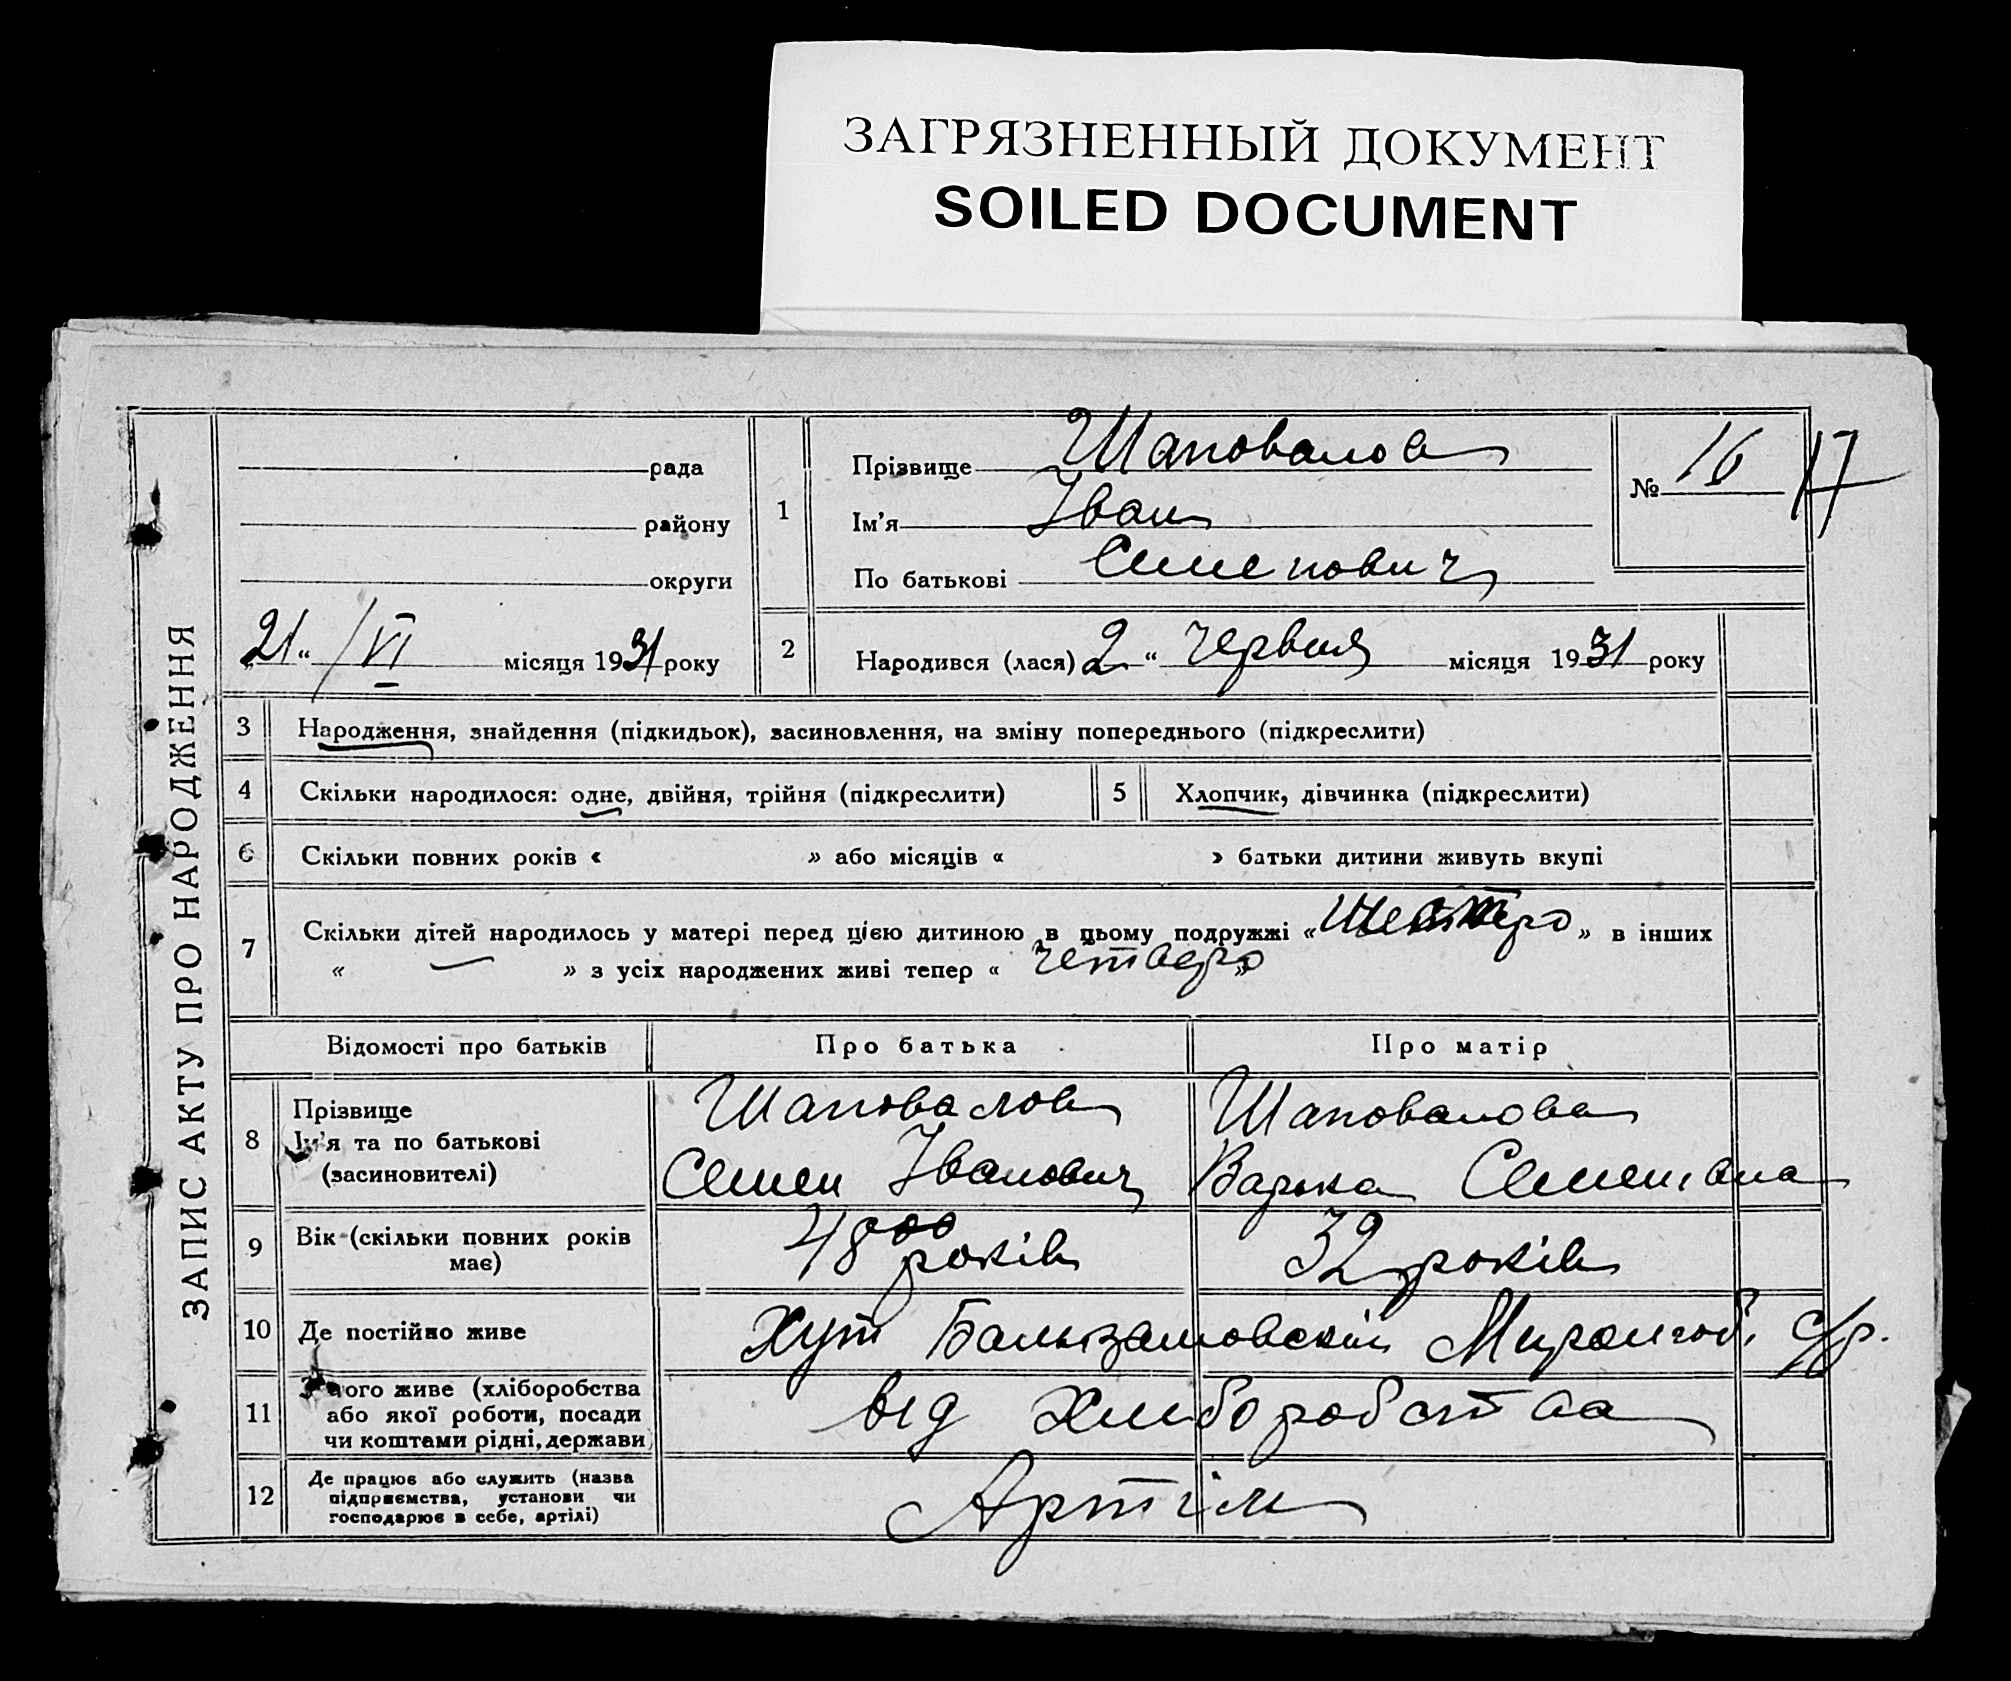 ЗАГРЯЗНЕННЫЙ ДОКУМЕНТ
SOILED DOCUMENT
ЗАПИС АКТУ ПРО НАРОДЖЕННЯ
рада
району
округи
„21“ /VI місяця 1931 року
1
Прізвище Шаповалов
Ім'я Іван
По батькові Семенович
№ 16
17
2 Народився (лася) 2 “ червня місяця 1931 року
3 Народження, знайдення (підкидьок), засиновлення, на зміну попереднього (підкреслити)
4 Скільки народилося: одне, двійня, трійня (підкреслити)
5 Хлопчик, дівчинка (підкреслити)
6 Скільки повних років « » або місяців « » батьки дитини живуть вкупі
7 Скільки дітей народилось у матері перед цією дитиною в цьому подружжі «шестеро» в інших
« — » з усіх народжених живі тепер « четверо »
Відомості про батьків
Про батька
Про матір
8 Прізвище
Ім'я та по батькові
(засиновителі)
Шаповалов
Семен Іванович
Шаповалова
Варька Семенівна
9 Вік (скільки повних років
має)
48 років
32 років
10 Де постійно живе
Хут с/р.
11 З чого живе (хліборобства
або якої роботи, посади
чи коштами рідні, держави)
від хліборобства
12 Де працює або служить (назва
підприємства, установи чи
господарює в себе, артілі)
Артіль